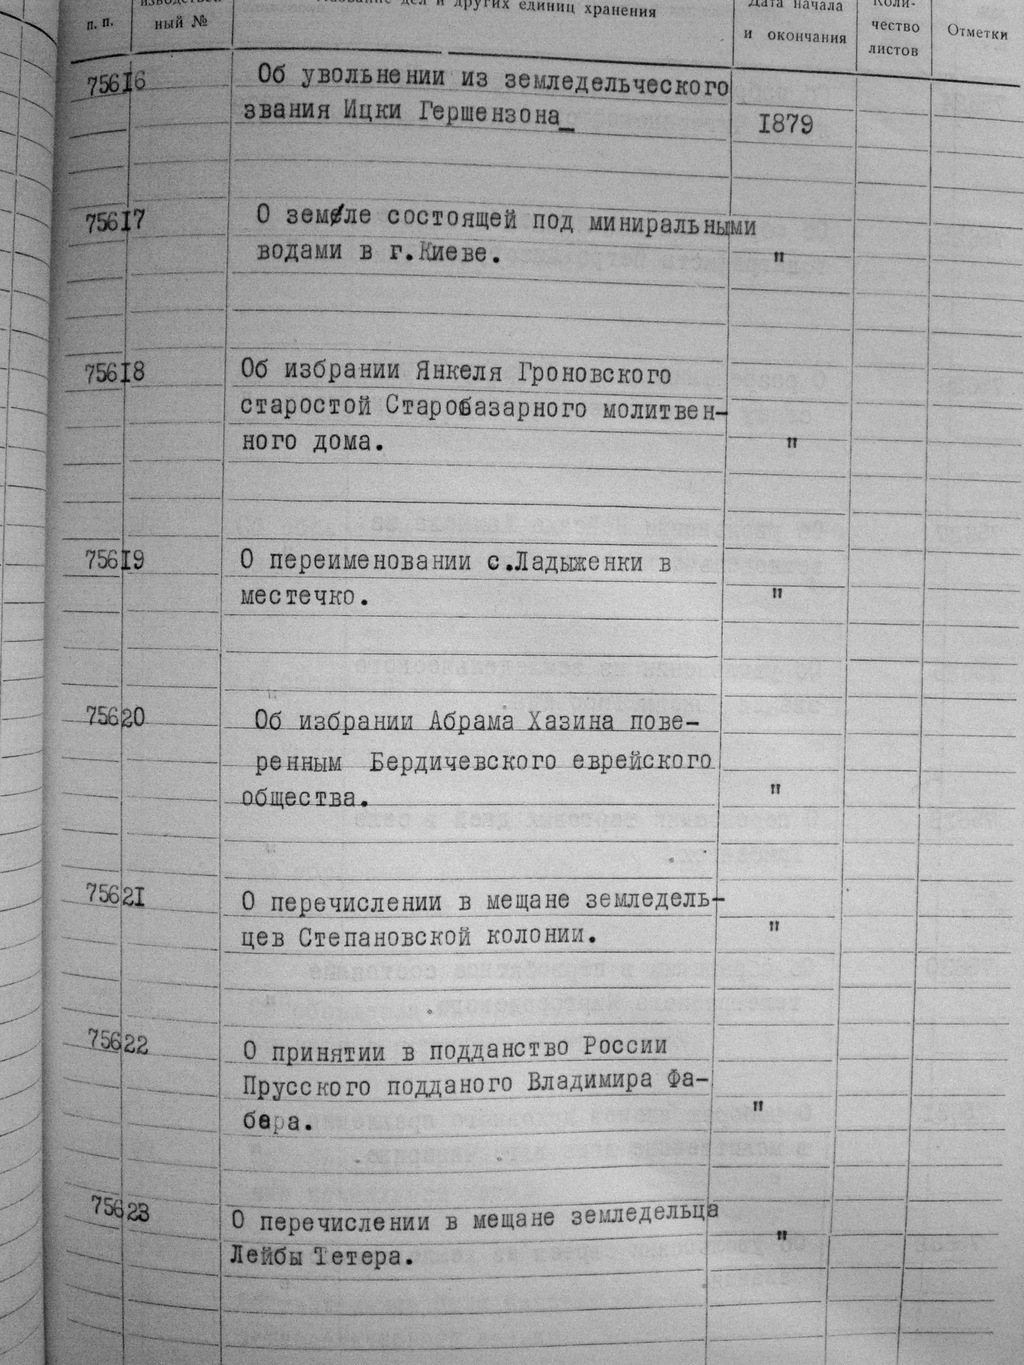 п. п.
ный №
Название дел и других единиц хранения
Дата начала
и окончания
Коли-
чество
листов
Отметки
75616
Об увольнении из земледельческого
звания Ицки Гершензона_
1879
75617
О земле состоящей под миниральными
водами в г.Киеве.
"
75618
Об избрании Янкеля Гроновского
старостой Старобазарного молитвен-
ного дома.
"
75619
О переименовании с.Ладыженки в
местечко.
"
75620
Об избрании Абрама Хазина пове-
ренным Бердичевского еврейского
общества.
"
75621
О перечислении в мещане земледель-
цев Степановской колонии.
"
75622
О принятии в подданство России
Прусского подданого Владимира Фа-
бера.
"
75623
О перечислении в мещане земледельца
Лейбы Тетера.
"